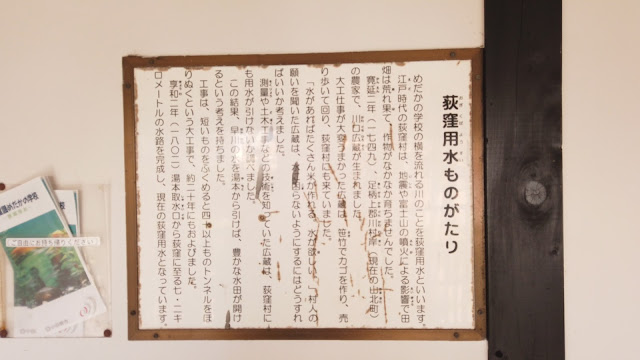 荻窪用水ものがたり
めだかの学校の横を流れる川のことを荻窪用水といいます。
江戸時代の荻窪村は、地震や富士山の噴火による影響で田
畑は荒れ果て、作物がなかなか育ちませんでした。
寛延二年(一七四九)、足柄上郡川村岸(現在の山北町)
の農家で、川口広蔵が生まれました。
大工仕事が大変うまかった広蔵は、笹竹でカゴを作り、売
り歩いて回り、荻窪村にも来ていました。
「水があればたくさん米が作れる。水が欲しい。」村人の
願いを聞いた広蔵は、水に困らないようにするにはどうすれ
ばいいか考えました。
測量や土木工事などの技術を知っていた広蔵は、荻窪村に
も用水が引けないか調べました。
この結果、早川の水を湯本から引けば、豊かな水田が開け
るという考えを持ちました。
工事は、短いものをふくめると四十以上ものトンネルをほ
りぬくという大工事で、約二十年にもおよびました。
享和二年(一八〇二)湯本取水口から荻窪に至る七・二キ
ロメートルの水路を完成し、現在の荻窪用水となっています。
めだかの学校
ご自由にお持ち帰りください